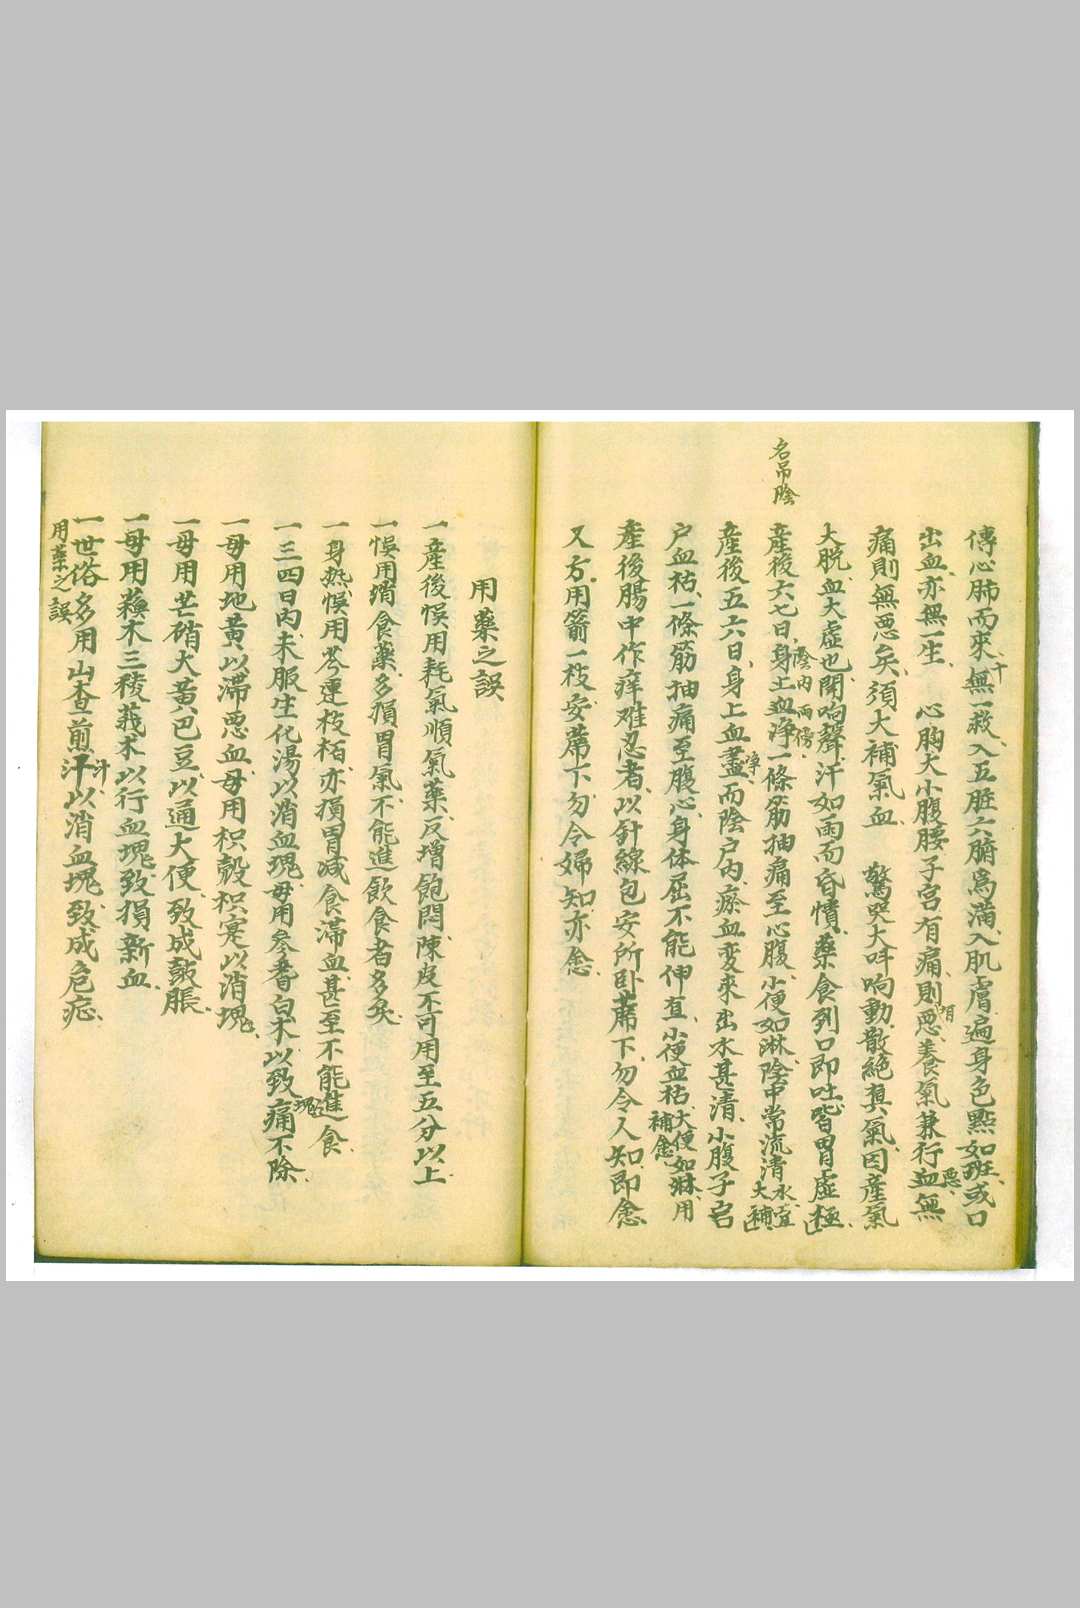 名吊陰
傳心肺而來、無一救、入五脏六腑爲滿、入肌膚遍身色點如斑、或口
十
出血、亦無一生、 心胸大小腹腰子宮有痛、則惡養氣兼行血無
惡
痛則無惡矣、須大補氣血、 驚哭大呌响動、散絶真氣、因產氣
大脱、血大虛也、開响聲、汗如雨而昏憒、藥食列口即吐、皆胃虛極、
產後六七日、身上血净、一條筋抽痛至心腹、小便如淋、陰中常流清水、宜大補
陰内兩傍
產後五六日、身上血盡、而陰户内瘀血变來出水甚清、小腹子宮
净
户血枯、一條筋抽痛至腹心、身体屈不能伸直、小便血枯、大便如淋、用補愈、
產後腸中作痒难忍者、以針線包安所卧蓆下、勿令人知、即愈
又方、用箭一枝、安蓆下、勿令婦知、亦愈、
用藥之誤
一產後悞用耗氣順氣藥、反增飽悶、陳皮不可用至五分以上、
一悞用消食藥、多損胃氣、不能進飲食者多矣、
一身熱、悞用芩連枝栢、亦損胃减食滯血、甚至不能進食、
一三四日内、未服生化湯以消血塊、毋用參耆白术、以致痛不除、
塊
一毋用地黃以滯惡血、毋用枳殻枳寔以消塊、
一毋用芒硝大黃巴豆以通大便、致成鼓脹、
一毋用蘇木三稜莪术以行血塊、致損新血、
一世俗多用山查煎汗以消血塊、致成危症、
汁
用藥之誤